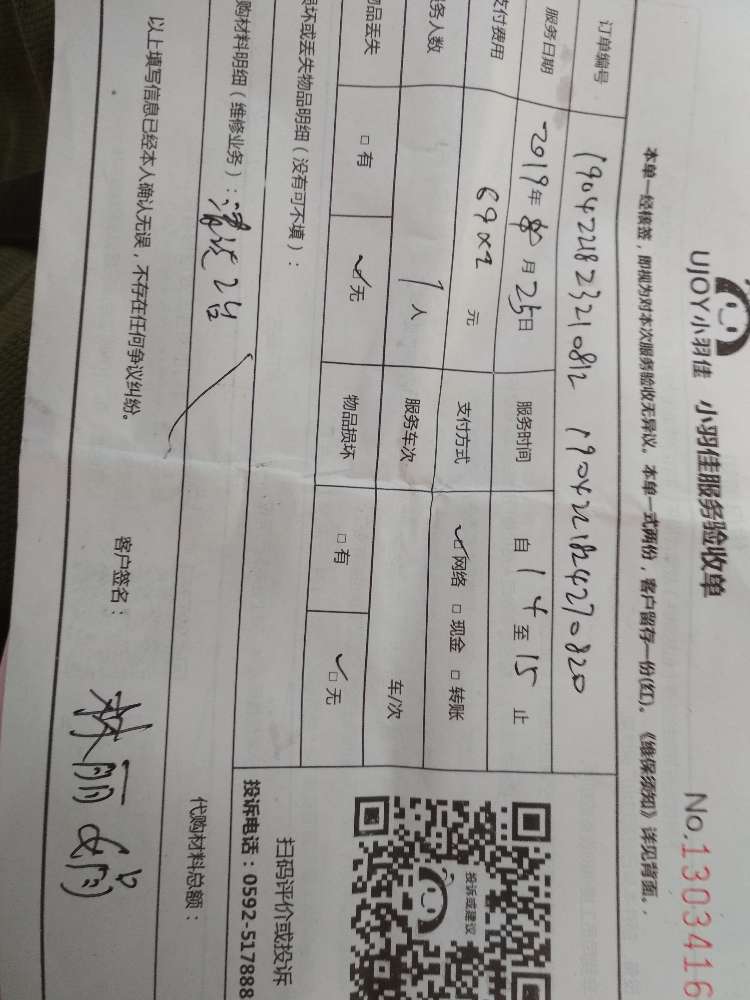 UJOY小羽佳 小羽佳服务验收单 No.1303416
本单一经核签，即视为对本次服务验收无异议。本单一式两份，客户留存一份(红)。《维保须知》详见背面。
订单编号 1904221823210812 1904221824270820
服务日期 2019年 月25日 服务时间 自14至15止
支付费用 69x2 元 支付方式 ☑网络 □现金 □转账
务人数 1人 服务车次 车/次
物品丢失 □有 ☑无 物品损坏 □有 ☑无
损坏或丢失物品明细（没有可不填）：
购材料明细（维修业务）：清洗2台 代购材料总额：
以上填写信息已经本人确认无误，不存在任何争议纠纷。
客户签名：林丽
投诉或建议
扫码评价或投诉
投诉电话：0592-517888